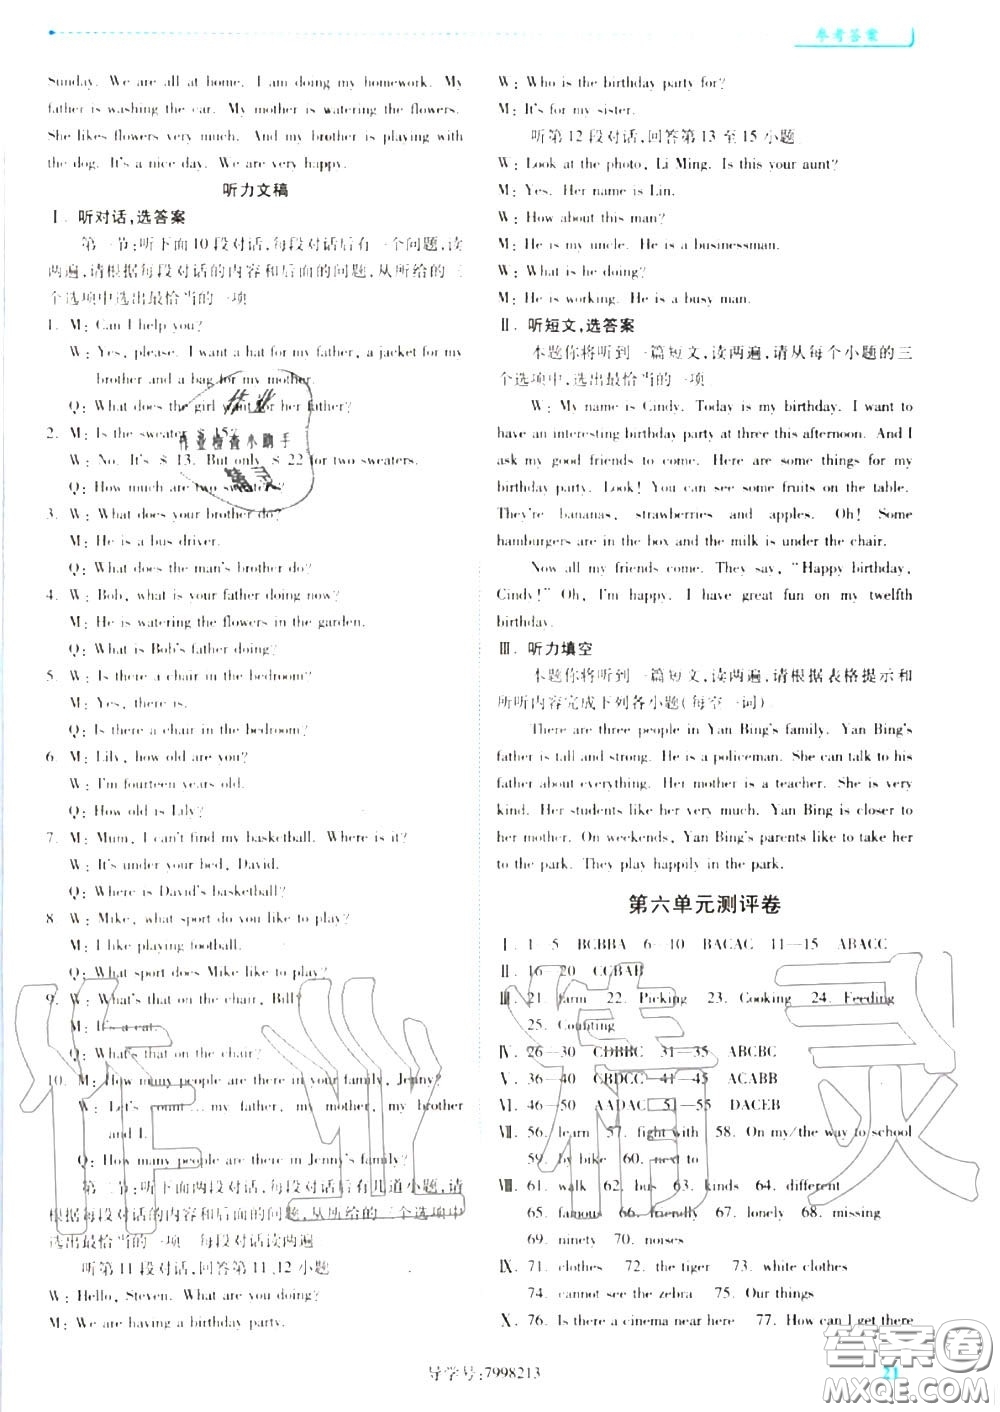 参考答案
Sunday. We are all at home. I am doing my homework. My
father is washing the car. My mother is watering the flowers.
She likes flowers very much. And my brother is playing with
the dog. It's a nice day. We are very happy.
听力文稿
Ⅰ. 听对话,选答案
第一节:听下面10段对话,每段对话后有一个问题,读
两遍,请根据每段对话的内容和后面的问题,从所给的三
个选项中选出最恰当的一项
1. M: Can I help you?
W: Yes, please. I want a hat for my father, a jacket for my
brother and a bag for my mother.
Q: What does the girl want for her father?
2. M: Is the sweater $ 15?
W: No. It's $ 13. But only $ 22 for two sweaters.
Q: How much are two sweaters?
3. W: What does your brother do?
M: He is a bus driver.
Q: What does the man's brother do?
4. W: Bob, what is your father doing now?
M: He is watering the flowers in the garden.
Q: What is Bob's father doing?
5. W: Is there a chair in the bedroom?
M: Yes, there is.
Q: Is there a chair in the bedroom?
6. M: Lily, how old are you?
W: I'm fourteen years old.
Q: How old is Lily?
7. M: Mum, I can't find my basketball. Where is it?
W: It's under your bed, David.
Q: Where is David's basketball?
8. W: Mike, what sport do you like to play?
M: I like playing football.
Q: What sport does Mike like to play?
9. W: What's that on the chair, Bill?
M: It's a cat.
Q: What's that on the chair?
10. M: How many people are there in your family, Jenny?
W: Let's count... my father, my mother, my brother
and I.
Q: How many people are there in Jenny's family?
第二节:听下面两段对话,每段对话后有几道小题,请
根据每段对话的内容和后面的问题,从所给的三个选项中
选出最恰当的一项 每段对话读两遍
听第11段对话,回答第11、12小题
W: Hello, Steven. What are you doing?
M: We are having a birthday party.
W: Who is the birthday party for?
M: It's for my sister.
听第12段对话,回答第13至15小题
W: Look at the photo, Li Ming. Is this your aunt?
M: Yes. Her name is Lin.
W: How about this man?
M: He is my uncle. He is a businessman.
W: What is he doing?
M: He is working. He is a busy man.
Ⅱ. 听短文,选答案
本题你将听到一篇短文,读两遍,请从每个小题的三
个选项中,选出最恰当的一项
W: My name is Cindy. Today is my birthday. I want to
have an interesting birthday party at three this afternoon. And I
ask my good friends to come. Here are some things for my
birthday party. Look! You can see some fruits on the table.
They're bananas, strawberries and apples. Oh! Some
hamburgers are in the box and the milk is under the chair.
Now all my friends come. They say, "Happy birthday,
Cindy!" Oh, I'm happy. I have great fun on my twelfth
birthday.
Ⅲ. 听力填空
本题你将听到一篇短文,读两遍,请根据表格提示和
所听内容完成下列各小题(每空一词)
There are three people in Yan Bing's family. Yan Bing's
father is tall and strong. He is a policeman. She can talk to his
father about everything. Her mother is a teacher. She is very
kind. Her students like her very much. Yan Bing is closer to
her mother. On weekends, Yan Bing's parents like to take her
to the park. They play happily in the park.
第六单元测评卷
Ⅰ. 1—5 BCBBA 6—10 BACAC 11—15 ABACC
Ⅱ. 16—20 CCBAB
Ⅲ. 21. farm 22. Picking 23. Cooking 24. Feeding
25. Counting
Ⅳ. 26—30 CDBBC 31—35 ABCBC
Ⅴ. 36—40 CBDCC 41—45 ACABB
Ⅵ. 46—50 AADAC 51—55 DACEB
Ⅶ. 56. learn 57. fight with 58. On my/the way to school
59. by bike 60. next to
Ⅷ. 61. walk 62. bus 63. kinds 64. different
65. famous 66. friendly 67. long 68. missing
69. ninety 70. noises
Ⅸ. 71. clothes 72. the tiger 73. white clothes
74. cannot see the zebra 75. Our things
Ⅹ. 76. Is there a cinema near here 77. How can I get there
导学号:7998213
21
作业
作业检查小助手
精灵
作业精灵
答案卷
MXQE.COM